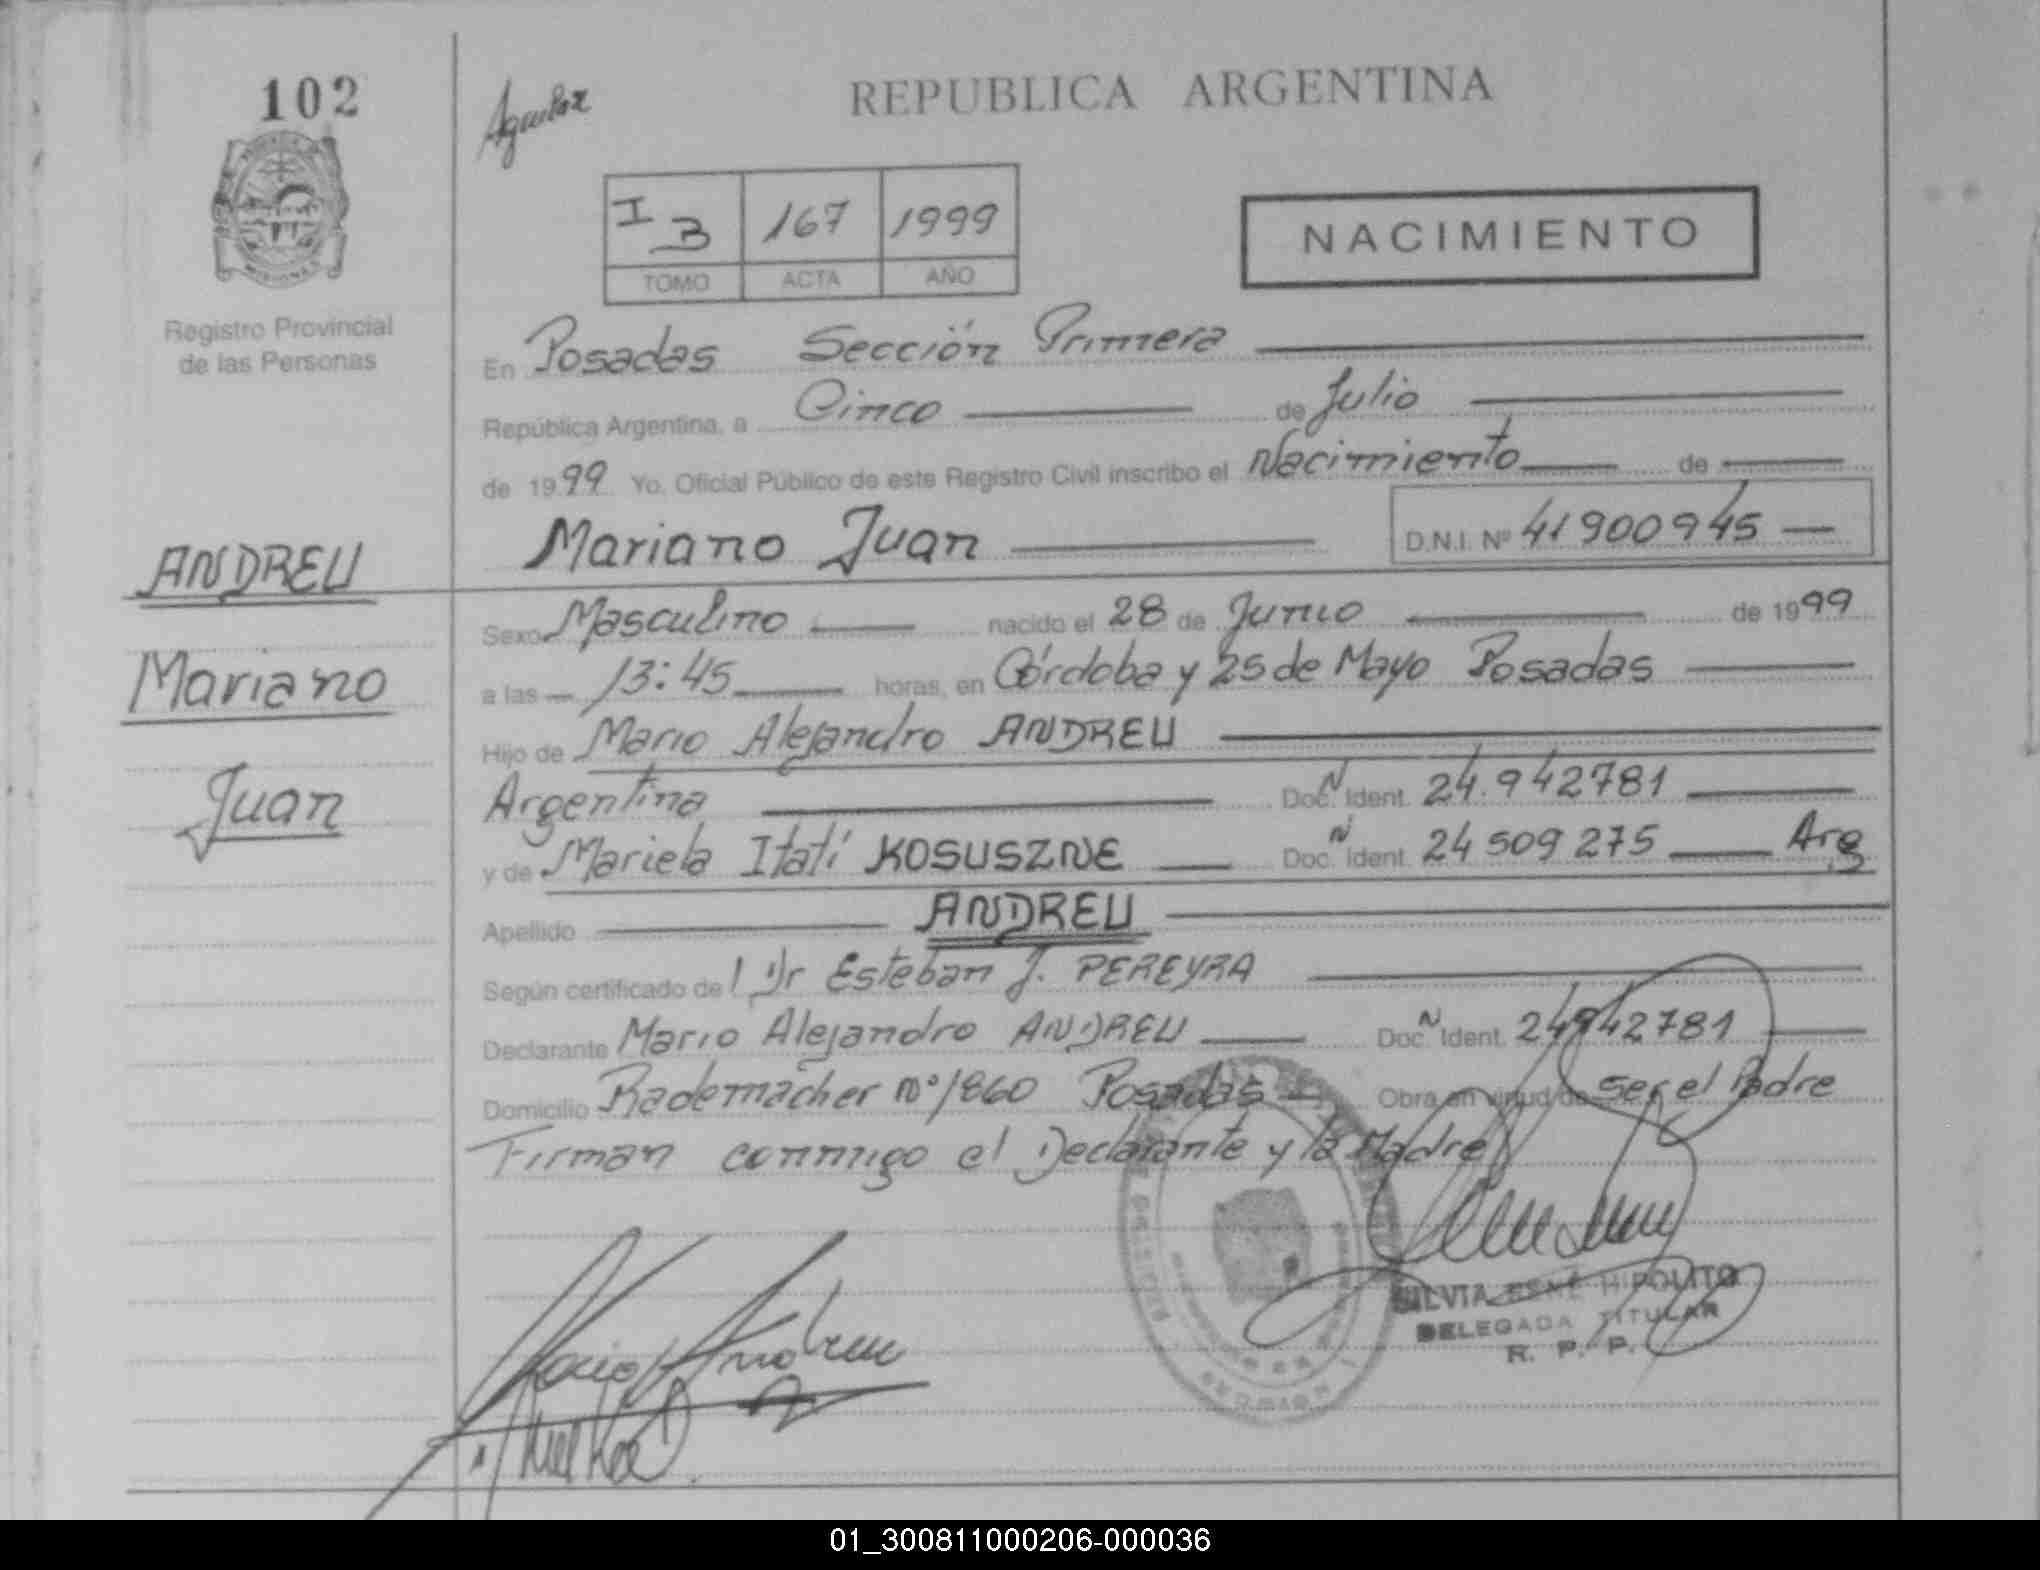 102
Aguilar
REPUBLICA ARGENTINA
I 3 167 1999
TOMO ACTA AÑO
NACIMIENTO
Registro Provincial
de las Personas
En Posadas Sección Primera
República Argentina, a Cinco de Julio
de 1999 Yo, Oficial Público de este Registro Civil inscribo el Nacimiento de
Mariano Juan D.N.I. Nº 41900945
ANDREU
Mariano
Juan
Sexo Masculino nacido el 28 de Junio de 1999
a las 13:45 horas, en Córdoba y 25 de Mayo Posadas
Hijo de Mario Alejandro ANDREU
Argentina Doc. N Ident. 24.942781
y de Mariela Itatí KOSUSZNE Doc. N Ident. 24509275 Arg
Apellido ANDREU
Según certificado de l Dr Esteban J. PEREYRA
Declarante Mario Alejandro ANDREU Doc. N Ident. 24942781
Domicilio Rademacher nº 1860 Posadas Obra en virtud de ser el Padre
Firman conmigo el Declarante y la Madre
SILVIA RENÉ HIPOLITO
DELEGADA TITULAR
R. P. P.
01_300811000206-000036